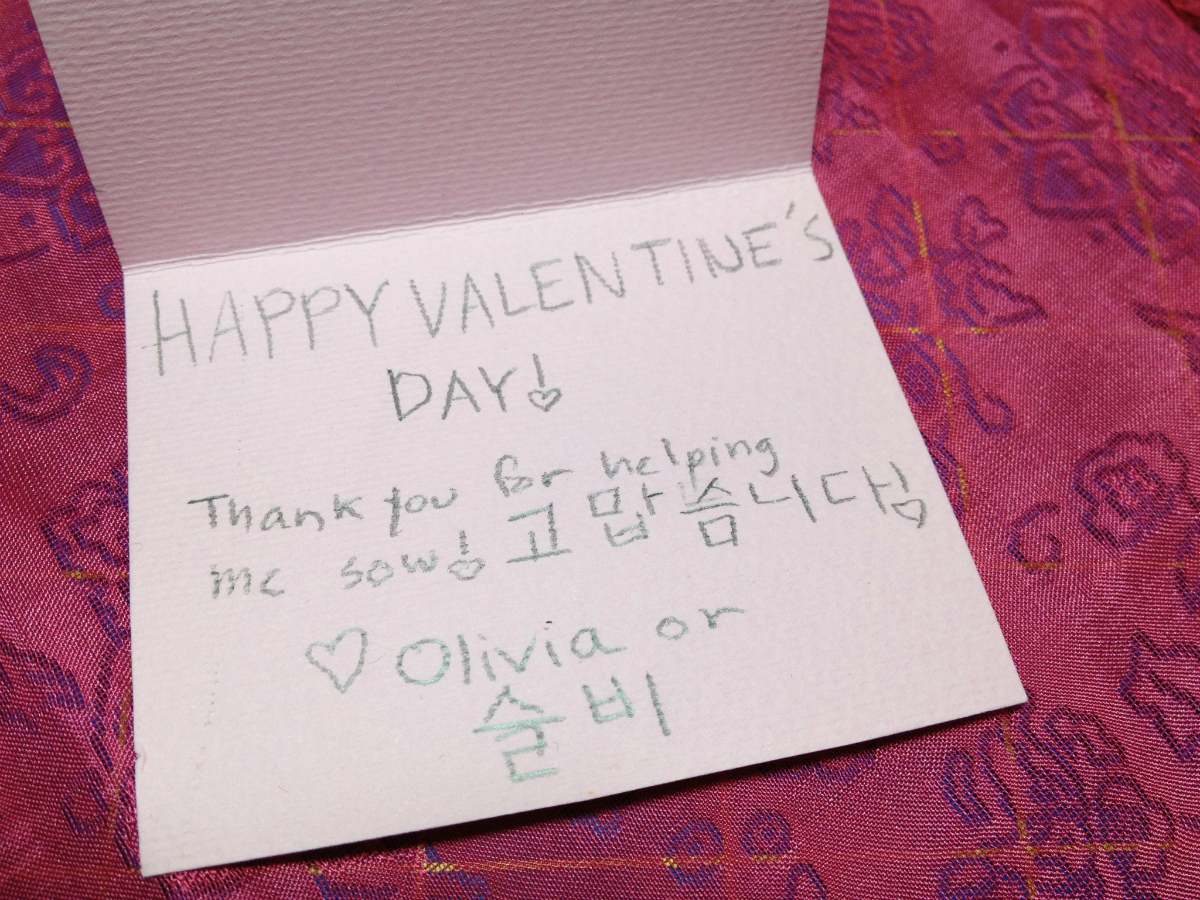 HAPPY VALENTINE'S
DAY!
Thank you for helping
me sow! 고맙슴니다!
♡ Olivia or
슬비